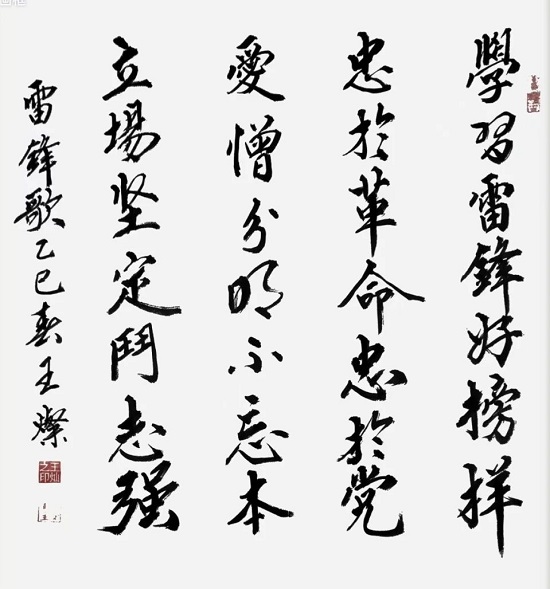 學習雷鋒好榜样
忠於革命忠於党
愛憎分明不忘本
立場坚定鬥志强
雷鋒歌乙巳春王燦
王灿之印